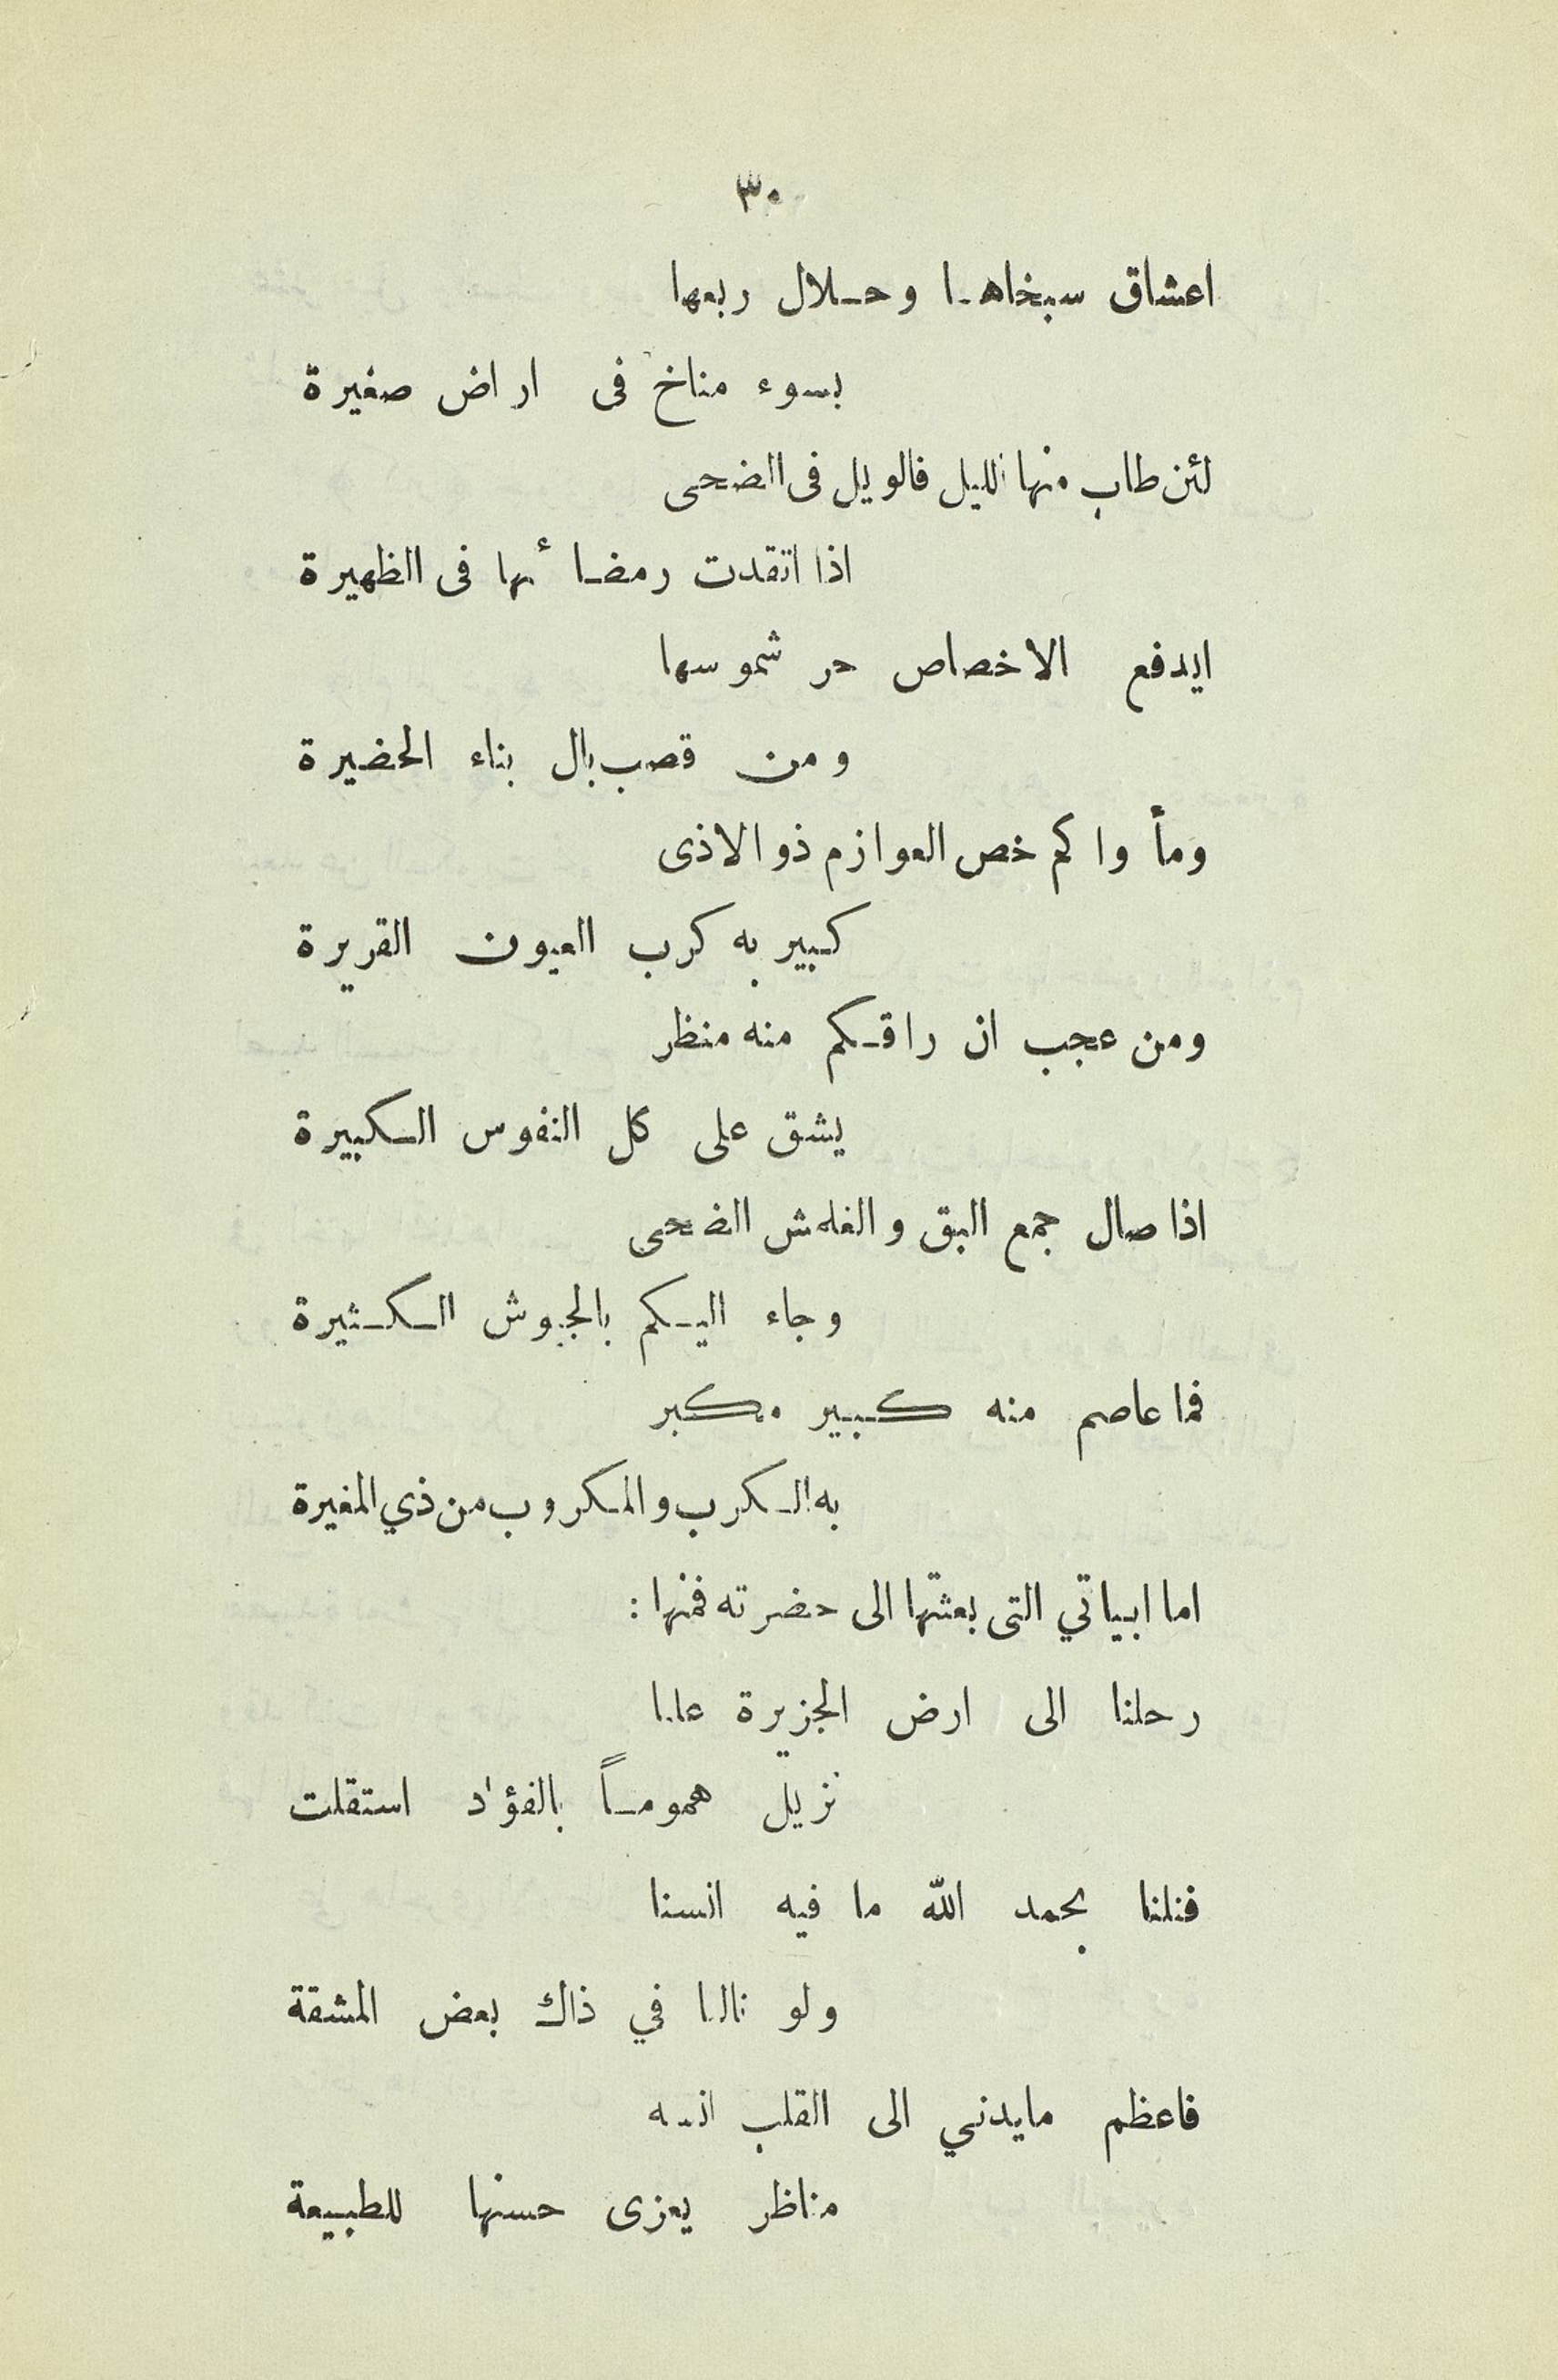 ٣٠
اعشاق سبخاها وحلال ربعها
بسوء مناخ فى اراض صغيرة
لئن طاب منها الليل فالويل فى الضحى
اذا اتقدت رمضائها فى الظهيرة
ايدفع الاخصاص حر شموسها
ومن قصب بال بناء الحضيرة
ومأواكم خص العوازم ذو الاذى
كبير به كرب العيون القريرة
ومن عجب ان راقكم منه منظر
يشق على كل النفوس الكبيرة
اذا صال جمع البق و الضحى
وجاء اليكم بالجيوش الكثيرة
فما عاصم منه كبير مكبر
به الكرب والمكروب من ذي المغيرة
اما ابياتي التى بعثتها الى حضرته فمنها :
رحلنا الى ارض الجزيرة علنا
نزيل هموماً بالفؤاد استقلت
فنلنا بحمد الله ما فيه انسنا
ولو نالنا في ذاك بعض المشقة
فاعظم مايدني الى القلب انسه
مناظر يعزى حسنها للطبيعة